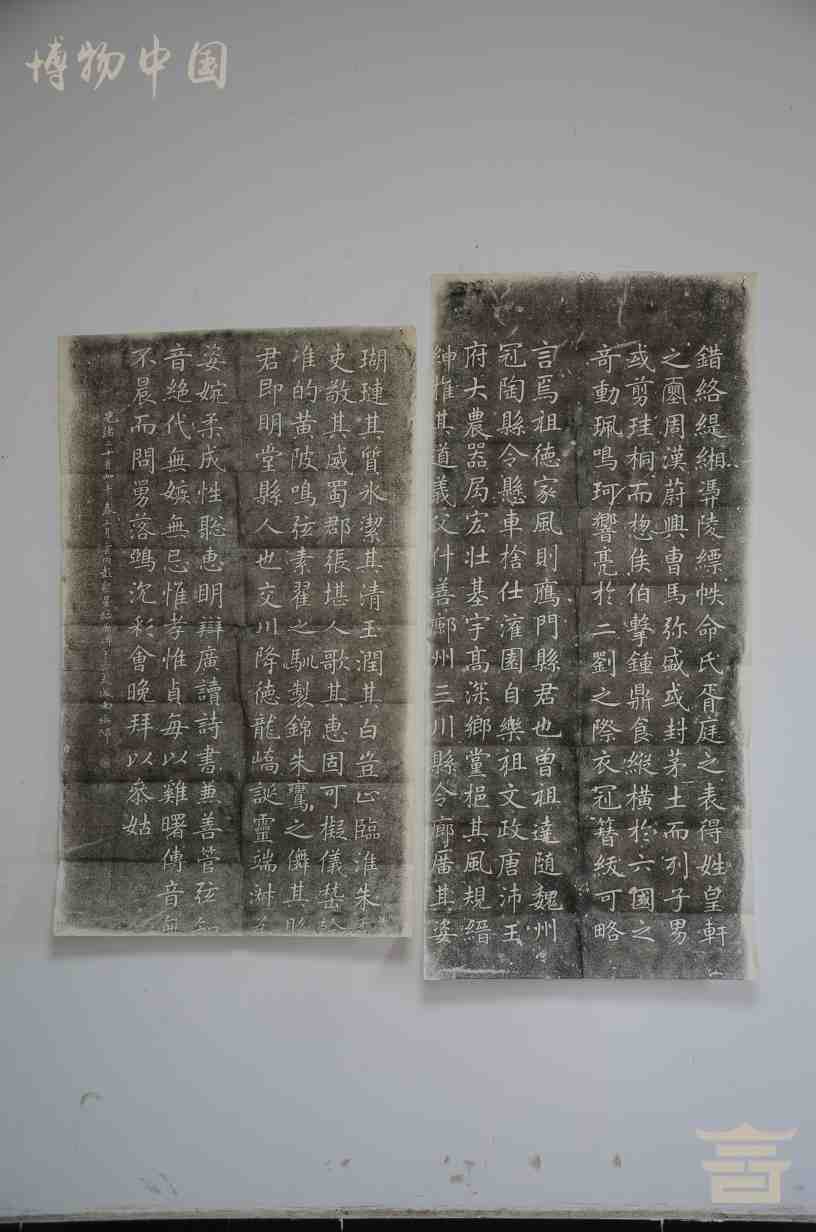 博物中国
錯絡緹緗淠陵縹帙命氏胥庭之表得姓皇軒
之壥周漢蔚興曹馬弥盛或封茅土而列子男
或剪珪桐而惣侯伯擊鍾鼎食縱橫於六國之
奇動珮鳴珂響亮於二劉之際衣冠簪紱可略
言焉祖德家風則鴈門縣君也曾祖達随魏州
冠陶縣令懸車捨仕灌園自樂祖文政唐沛王
府大農器局宏壯基宇高深鄉黨挹其風規縉
紳推其道義父什善鄜州三川縣令廊廡其姿
瑚璉其質氷潔其清玉潤其白豈止臨淮朱
吏敬其威蜀郡張堪人歌其惠固可擬儀
准的黃陂鳴弦素翟之馴製錦朱鸞之儔其
君即明堂縣人也交川降德龍嶠誕靈端淑
姿婉柔成性聡惠明辯廣讀詩書兼善管弦
音絶代無嫉無忌惟孝惟貞每以雞曙傳音
不晨而問舅落鵶沉彩會晚拜以叅姑